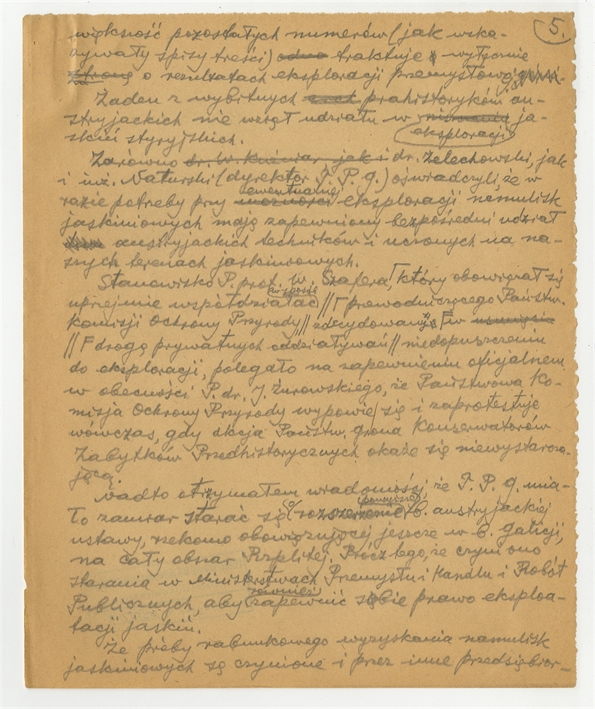 5.
większość pozostałych numerów (jak wska-
zywały spisy treści) traktuje wyłącznie
o rezultatach eksploracji przemysłowej
Żaden z wybitnych prahistoryków au-
stryjackich nie wziął udziału w eksploracji ja-
skiń styryjskich.
Zarówno dr. W. Kuźniar jak i dr. Żelechowski, jak
i inż. Naturski (dyrektor T. P. g.) oświadczyli, że w
razie potrzeby przy ewentualnej eksploracji namulisk
jaskiniowych mają zapewniony bezpośredni udział
austryjackich techników i uczonych na na-
szych terenach jaskiniowych.
Stanowisko P. prof. W. Szafera, który obowiązał się
uprzejmie współdziałać // przewodniczącego Państw.
Komisji Ochrony Przyrody // zdecydowany w
// drogą prywatnych oddziaływań // niedopuszczeniu
do eksploracji, polegało na zapewnieniu oficjalnem
w obecności P. dr. J. Żurowskiego, że Państwowa Ko-
misja Ochrony Przyrody wypowie się i zaprotestuje
wówczas, gdy akcja Państw. Grona Konserwatorów
Zabytków Przedhistorycznych okaże się niewystarcza-
jącą.
Nadto otrzymałem wiadomości, że T. P. g. mia-
ło zamiar starać się o rozszerzenie b. austryjackiej
ustawy, rzekomo obowiązującej jeszcze w b. Galicji,
na cały obszar Rzplitej. Prócz tego, że czyni ono
starania w Ministerstwach Przemysłu i Handlu i Robót
Publicznych, aby również zapewnić sobie prawo eksploa-
tacji jaskiń.
Że próby rabunkowego wyzyskania namulisk
jaskiniowych są czynione i przez inne przedsiębior-